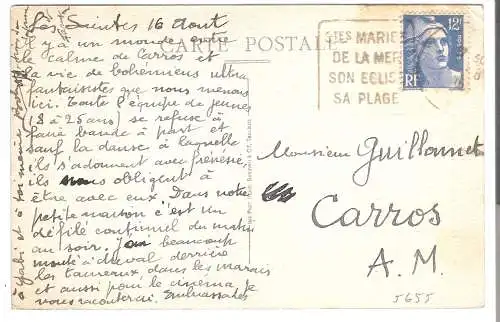 Les Saintes 16 Août
Il y a un monde entre
le calme de Carros et
la vie de bohémiens ultra
fantaisistes que nous menons
ici. Toute l'équipe de jeunes
(18 à 25 ans) se refuse à
faire bande à part et
sauf la danse à laquelle
ils s'adonnent avec frénésie
ils nous obligent à
être avec eux. Dans notre
petite maison c'est un
défilé continuel du matin
au soir. J'ai beaucoup
monté à cheval derrière
les taureaux, dans les marais
et aussi pour le cinéma je
vous raconterai. Embrassades
à Gabi et à
CARTE POSTALE
STES MARIE
DE LA MER
SON EGLISE
SA PLAGE
12F
RF
Monsieur Guillonnet
Carros
A. M.
5655